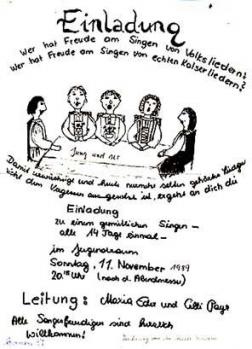 Einladung
Wer hat Freude am Singen von Volksliedern?
Wer hat Freude am Singen von echten Kalserliedern?
Jung und Alt
Damit und nicht selten gehörte Lieder
nicht dem Vergessen ausgesetzt ist, ergeht an dich die
Einladung
zu einem gemütlichen Singen –
alle 14 Tage einmal –
im Jugendraum
Sonntag, 11. November 1989
20.15 Uhr (nach d. Abendmesse)
Leitung: Maria und Cilli
Alle Sangesfreudigen sind herzlich
Willkommen!